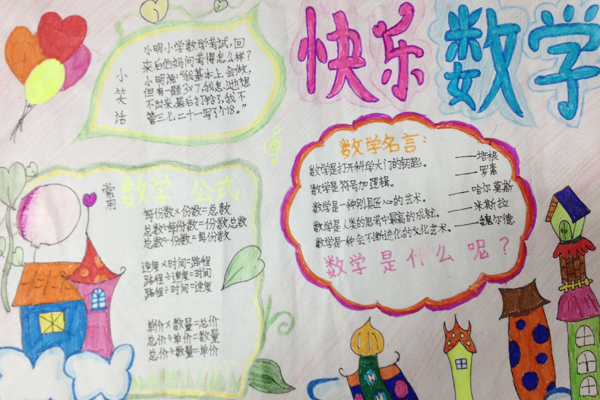 快乐数学
小笑话
小明小学数学考试,回
来后他妈问考得怎么样?
小明道:“我基本上会做,
但有一题3×7,我怎么也想
不出来,最后打铃了,我不
管三七二十一写了个18。”
数学名言:
数学是打开科学大门的钥匙。——培根
数学是符号加逻辑。——罗素
数学是一种别具匠心的艺术。——哈尔莫斯
数学是人类的思考中最高的成就。——米斯拉
数学是一种会不断进化的文化艺术。——魏尔德
数学是什么呢?
常用
数学公式
每份数×份数=总数
总数÷每份数=份数
总数÷份数=每份数
速度×时间=路程
路程÷速度=时间
路程÷时间=速度
单价×数量=总价
总价÷单价=数量
总价÷数量=单价